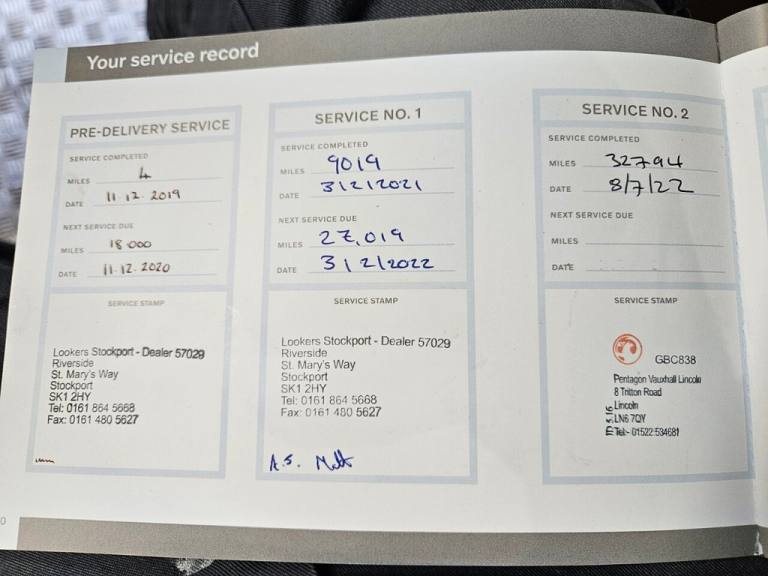 Your service record
PRE-DELIVERY SERVICE
SERVICE COMPLETED
MILES 4
DATE 11.12.2019
NEXT SERVICE DUE
MILES 18 000
DATE 11.12.2020
SERVICE STAMP
Lookers Stockport - Dealer 57029
Riverside
St. Mary's Way
Stockport
SK1 2HY
Tel: 0161 864 5668
Fax: 0161 480 5627
SERVICE NO. 1
SERVICE COMPLETED
MILES 9019
DATE 3|2|2021
NEXT SERVICE DUE
MILES 27,019
DATE 3|2|2022
SERVICE STAMP
Lookers Stockport - Dealer 57029
Riverside
St. Mary's Way
Stockport
SK1 2HY
Tel: 0161 864 5668
Fax: 0161 480 5627
A.S.
SERVICE NO. 2
SERVICE COMPLETED
MILES 32794
DATE 8/7/22
NEXT SERVICE DUE
MILES
DATE
SERVICE STAMP
GBC838
Pentagon Vauxhall Lincoln
8 Tritton Road
Lincoln
LN6 7QY
Tel:- 01522 534681